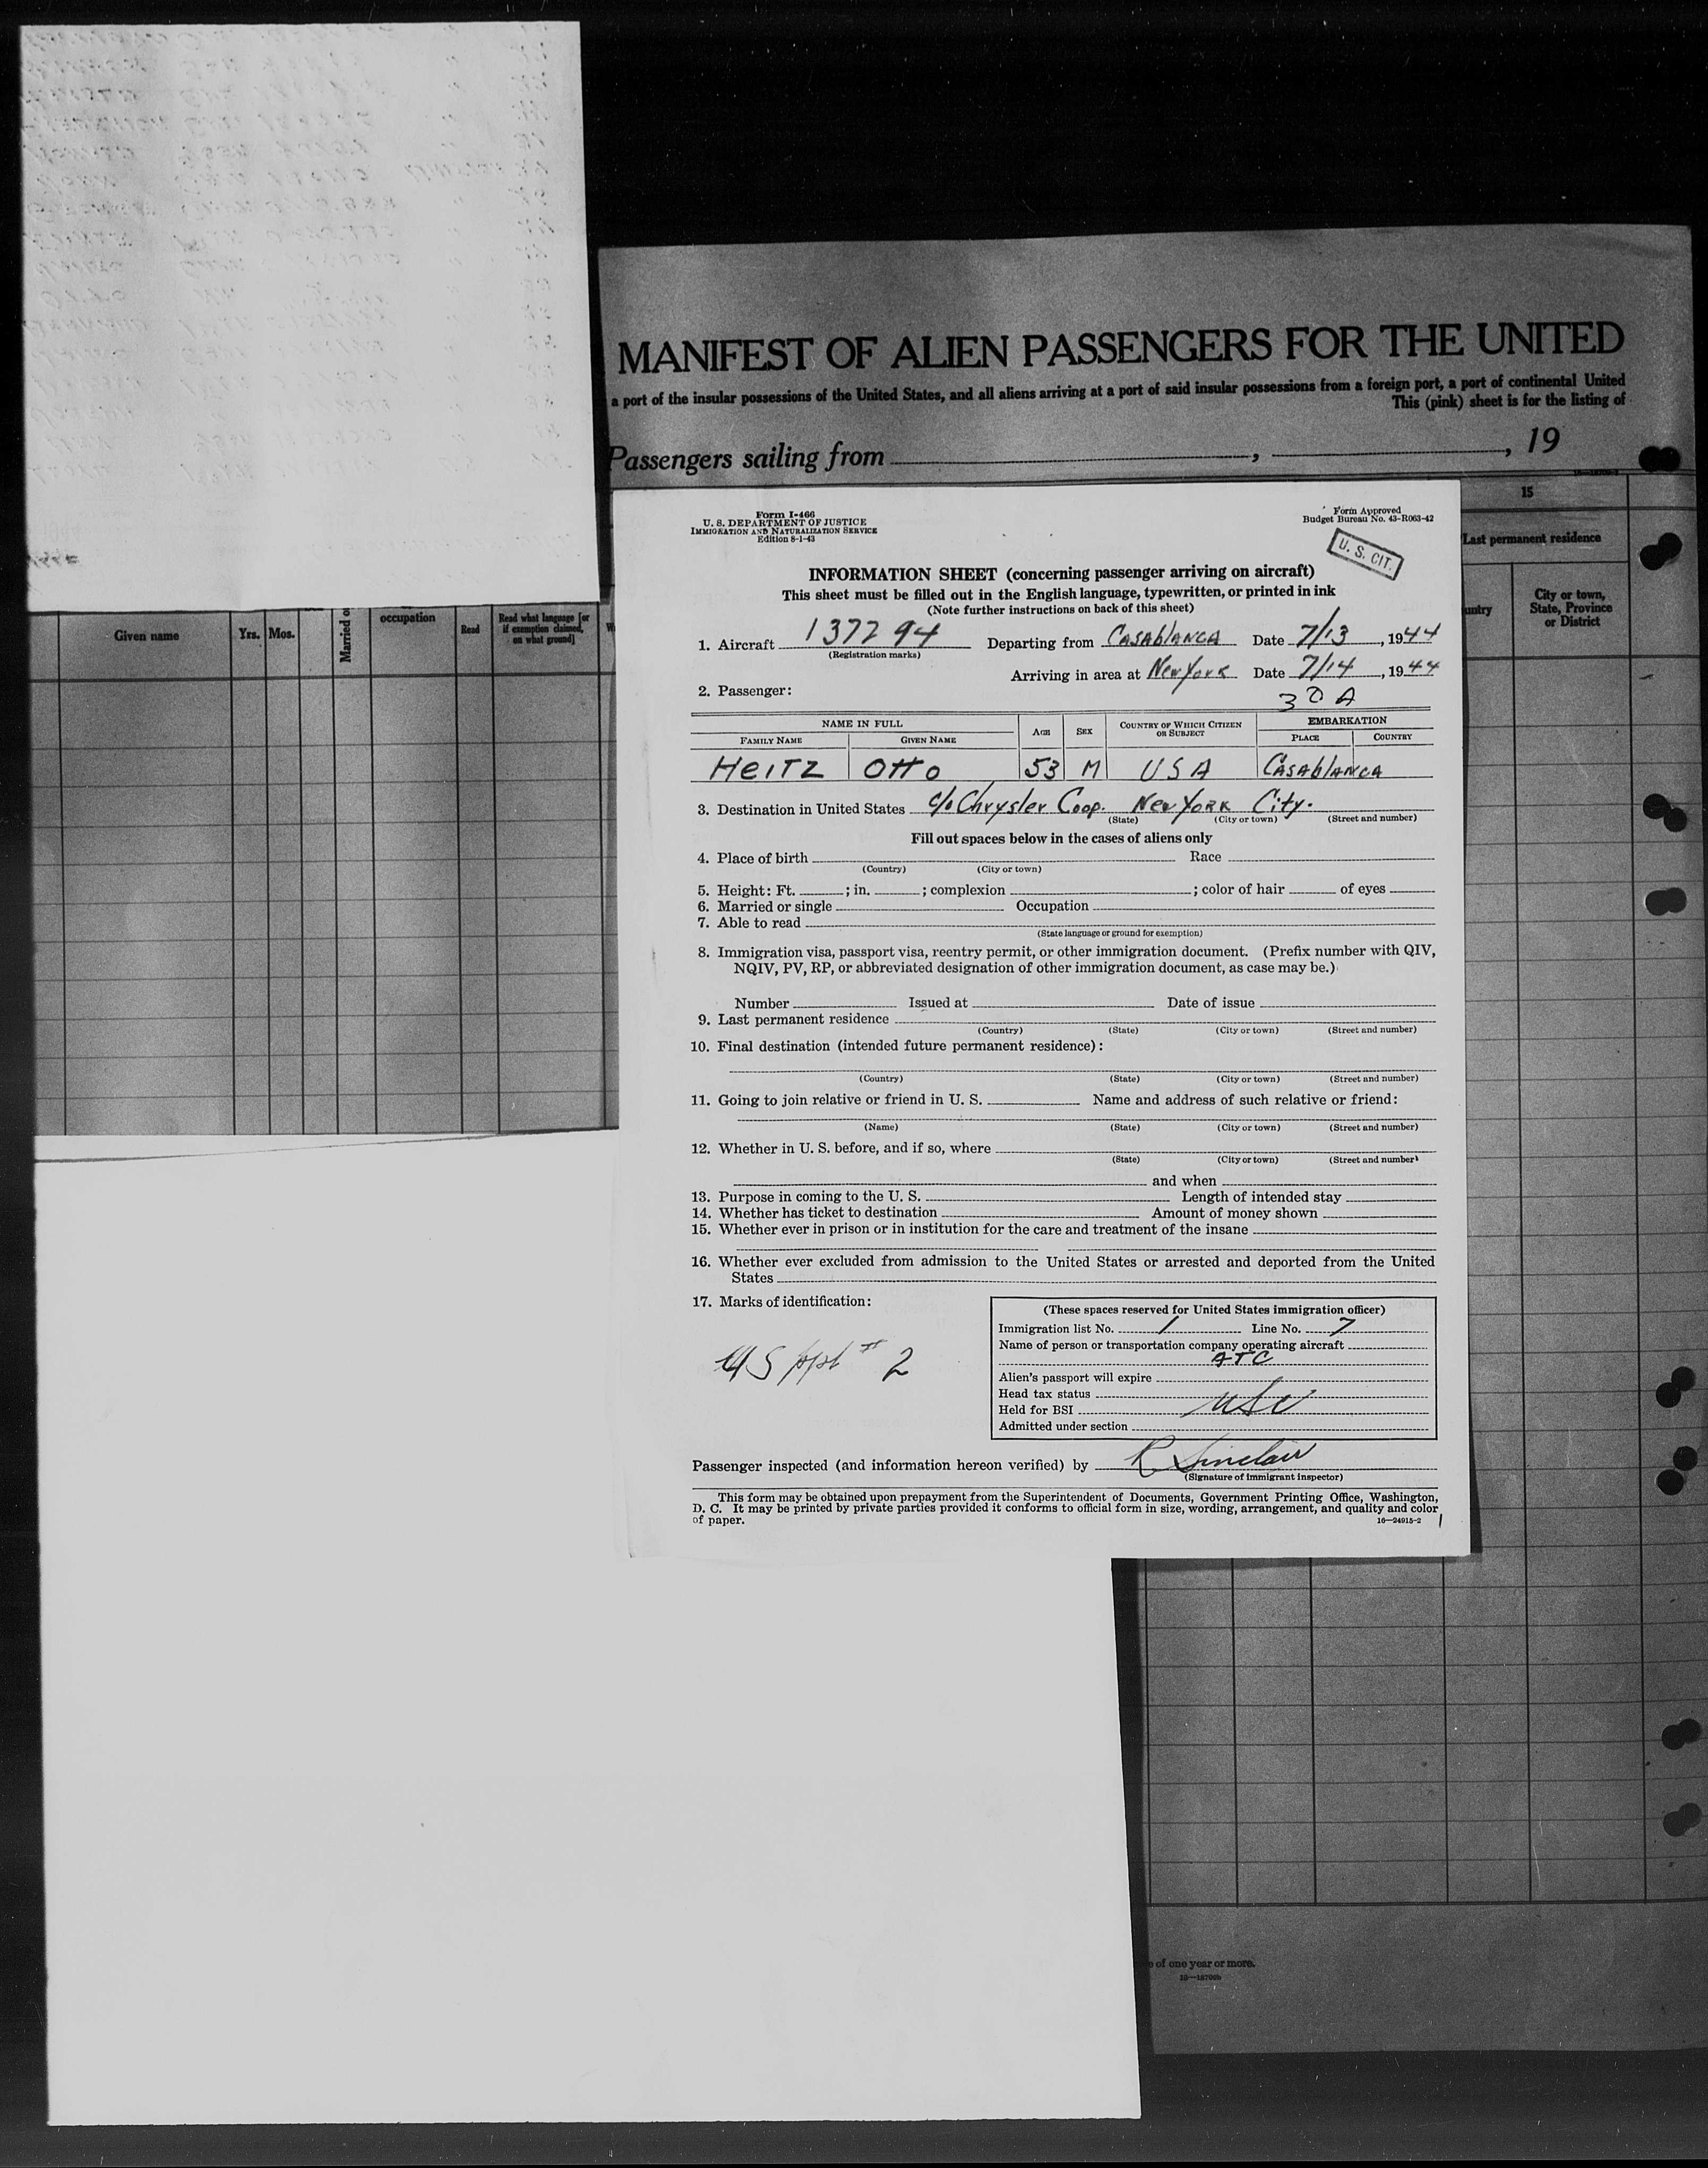 MANIFEST OF ALIEN PASSENGERS FOR THE UNITED
a port of the insular possessions of the United States, and all aliens arriving at a port of said insular possessions from a foreign port, a port of continental United
This (pink) sheet is for the listing of
Passengers sailing from , , 19
15
Last permanent residence
City or town, State, Province or District
Given name
Yrs. Mos.
Married o
occupation
Read
Read what language [or if exemption claimed, on what ground]
Form I-466
U. S. DEPARTMENT OF JUSTICE
IMMIGRATION AND NATURALIZATION SERVICE
Edition 8-1-43
Form Approved
Budget Bureau No. 43-R063-42
U. S. CIT.
INFORMATION SHEET (concerning passenger arriving on aircraft)
This sheet must be filled out in the English language, typewritten, or printed in ink
(Note further instructions on back of this sheet)
1. Aircraft 137294 Departing from CASAblANCA Date 7/13, 1944
(Registration marks)
Arriving in area at New York Date 7/14, 1944
2. Passenger:
30A
NAME IN FULL
FAMILY NAME GIVEN NAME AGE SEX COUNTRY OF WHICH CITIZEN OR SUBJECT EMBARKATION
PLACE COUNTRY
HEITZ OTTO 53 M USA CASAblANCA
3. Destination in United States c/o Chrysler Coop. New York City.
(State) (City or town) (Street and number)
Fill out spaces below in the cases of aliens only
4. Place of birth Race
(Country) (City or town)
5. Height: Ft. ; in. ; complexion ; color of hair of eyes
6. Married or single Occupation
7. Able to read
(State language or ground for exemption)
8. Immigration visa, passport visa, reentry permit, or other immigration document. (Prefix number with QIV,
NQIV, PV, RP, or abbreviated designation of other immigration document, as case may be.)
Number Issued at Date of issue
9. Last permanent residence
(Country) (State) (City or town) (Street and number)
10. Final destination (intended future permanent residence):
(Country) (State) (City or town) (Street and number)
11. Going to join relative or friend in U. S. Name and address of such relative or friend:
(Name) (State) (City or town) (Street and number)
12. Whether in U. S. before, and if so, where
(State) (City or town) (Street and number)
and when
13. Purpose in coming to the U. S. Length of intended stay
14. Whether has ticket to destination Amount of money shown
15. Whether ever in prison or in institution for the care and treatment of the insane
16. Whether ever excluded from admission to the United States or arrested and deported from the United
States
17. Marks of identification:
US ppt # 2
(These spaces reserved for United States immigration officer)
Immigration list No. 1 Line No. 7
Name of person or transportation company operating aircraft
ATC
Alien's passport will expire
Head tax status
Held for BSI USC
Admitted under section
Passenger inspected (and information hereon verified) by R Sinclair
(Signature of immigrant inspector)
This form may be obtained upon prepayment from the Superintendent of Documents, Government Printing Office, Washington,
D. C. It may be printed by private parties provided it conforms to official form in size, wording, arrangement, and quality and color
of paper.
16—24915-2
of one year or more.